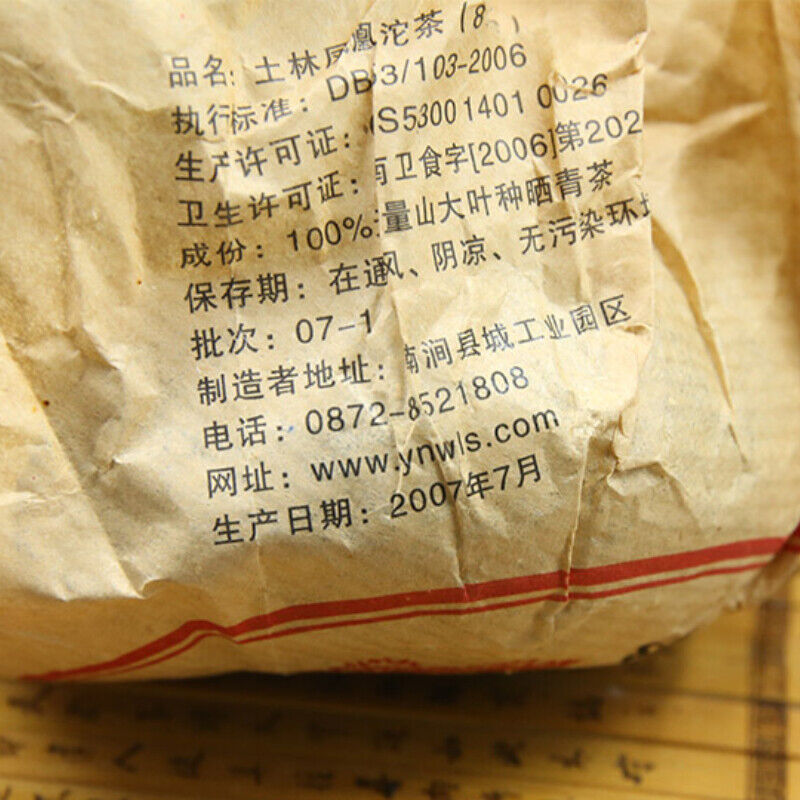 品名: 土林凤凰沱茶(8
执行标准: DB53/103-2006
生产许可证: QS53001401 0026
卫生许可证: 南卫食字[2006]第202
成份: 100%无量山大叶种晒青茶
保存期: 在通风、阴凉、无污染环境
批次: 07-1
制造者地址: 南涧县城工业园区
电话: 0872-8521808
网址: www.ynwls.com
生产日期: 2007年7月